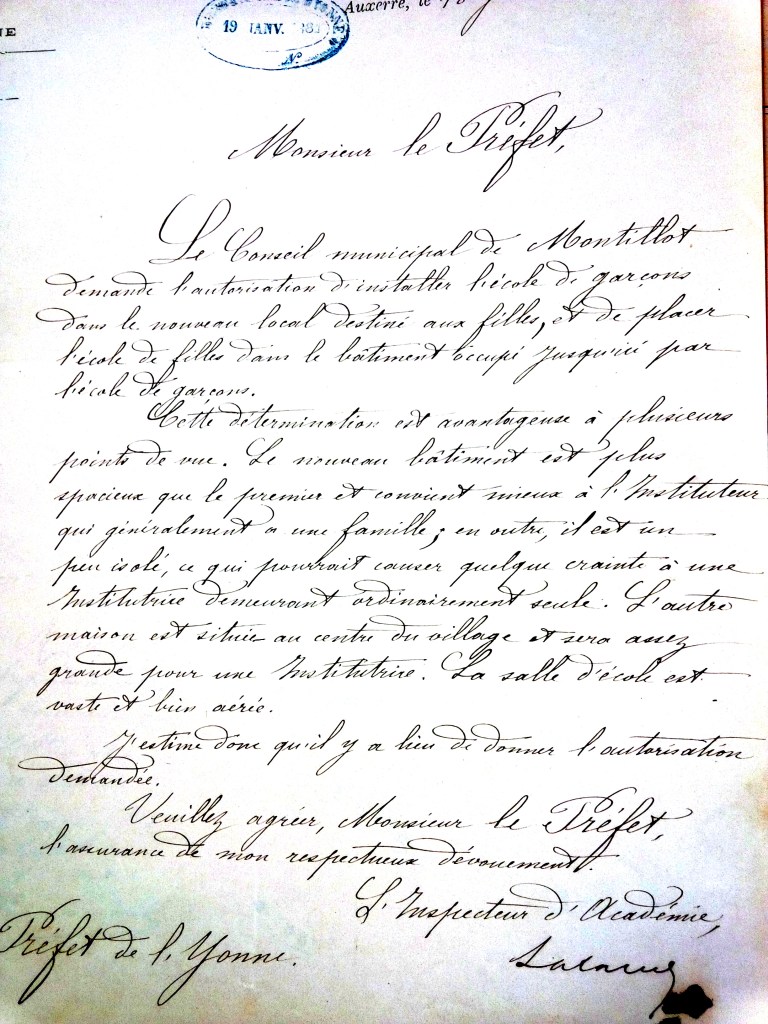 NE
Auxerre, le
19 JANV. 188
N°
Monsieur le Préfet,
Le Conseil municipal de Montillot
demande l'autorisation d'installer l'école de garçons
dans le nouveau local destiné aux filles, et de placer
l'école de filles dans le bâtiment occupé jusqu'ici par
l'école de garçons.
Cette détermination est avantageuse à plusieurs
points de vue. Le nouveau bâtiment est plus
spacieux que le premier et convient mieux à l'Instituteur
qui généralement a une famille; en outre, il est un
peu isolé, ce qui pourrait causer quelque crainte à une
Institutrice demeurant ordinairement seule. L'autre
maison est située au centre du village et sera assez
grande pour une Institutrice. La salle d'école est
vaste et bien aérée.
J'estime donc qu'il y a lieu de donner l'autorisation
demandée.
Veuillez agréer, Monsieur le Préfet,
l'assurance de mon respectueux dévouement.
L'Inspecteur d'Académie,
Préfet de l'Yonne.